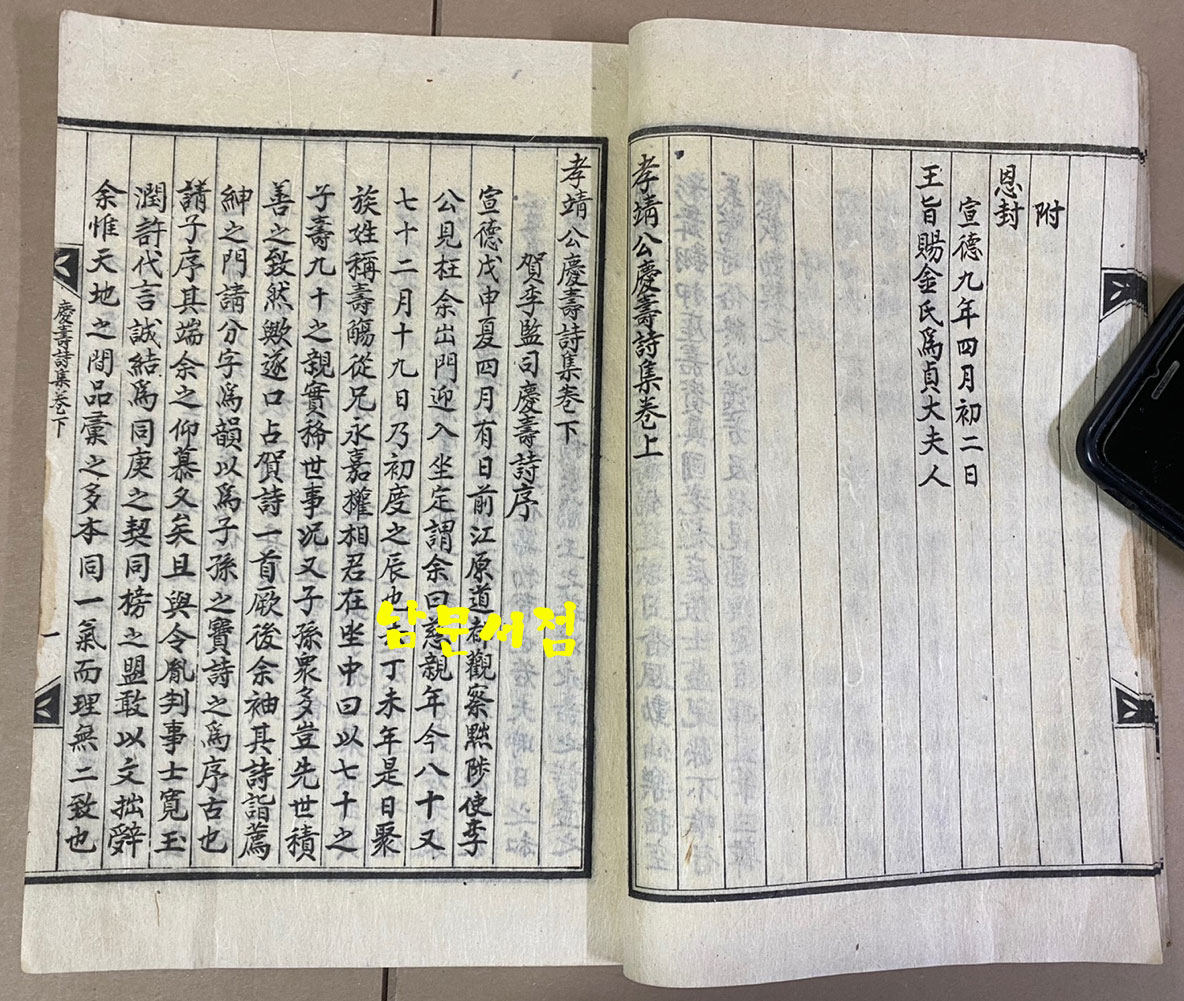 附
恩封
宣德九年四月初二日
王旨賜金氏爲貞大夫人
孝靖公慶壽詩集卷上
孝靖公慶壽詩集卷下
賀李監司慶壽詩序
宣德戊申夏四月有日前江原道都觀察黜陟使李
公見枉余出門迎入坐定謂余曰慈親年今八十又
七十二月十九日乃初度之辰也 丁未年是日聚
族姓稱壽觴從兄永嘉權相君在坐中曰以七十之
子壽九十之親實稀世事況又子孫衆多豈先世積
善之致然歟遂口占賀詩一首厥後余袖其詩詣薦
紳之門請分字爲韻以爲子孫之寶詩之爲序古也
請子序其端余之仰慕久矣且與令胤判事士寬玉
潤許代言誠結爲同庚之契同榜之盟敢以文拙辭
余惟天地之間品彙之多本同一氣而理無二致也
慶壽詩集卷下
一
남문서점